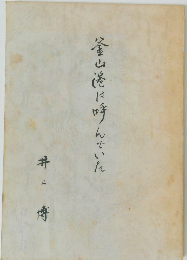 釜山港に呼んでいた
井上博